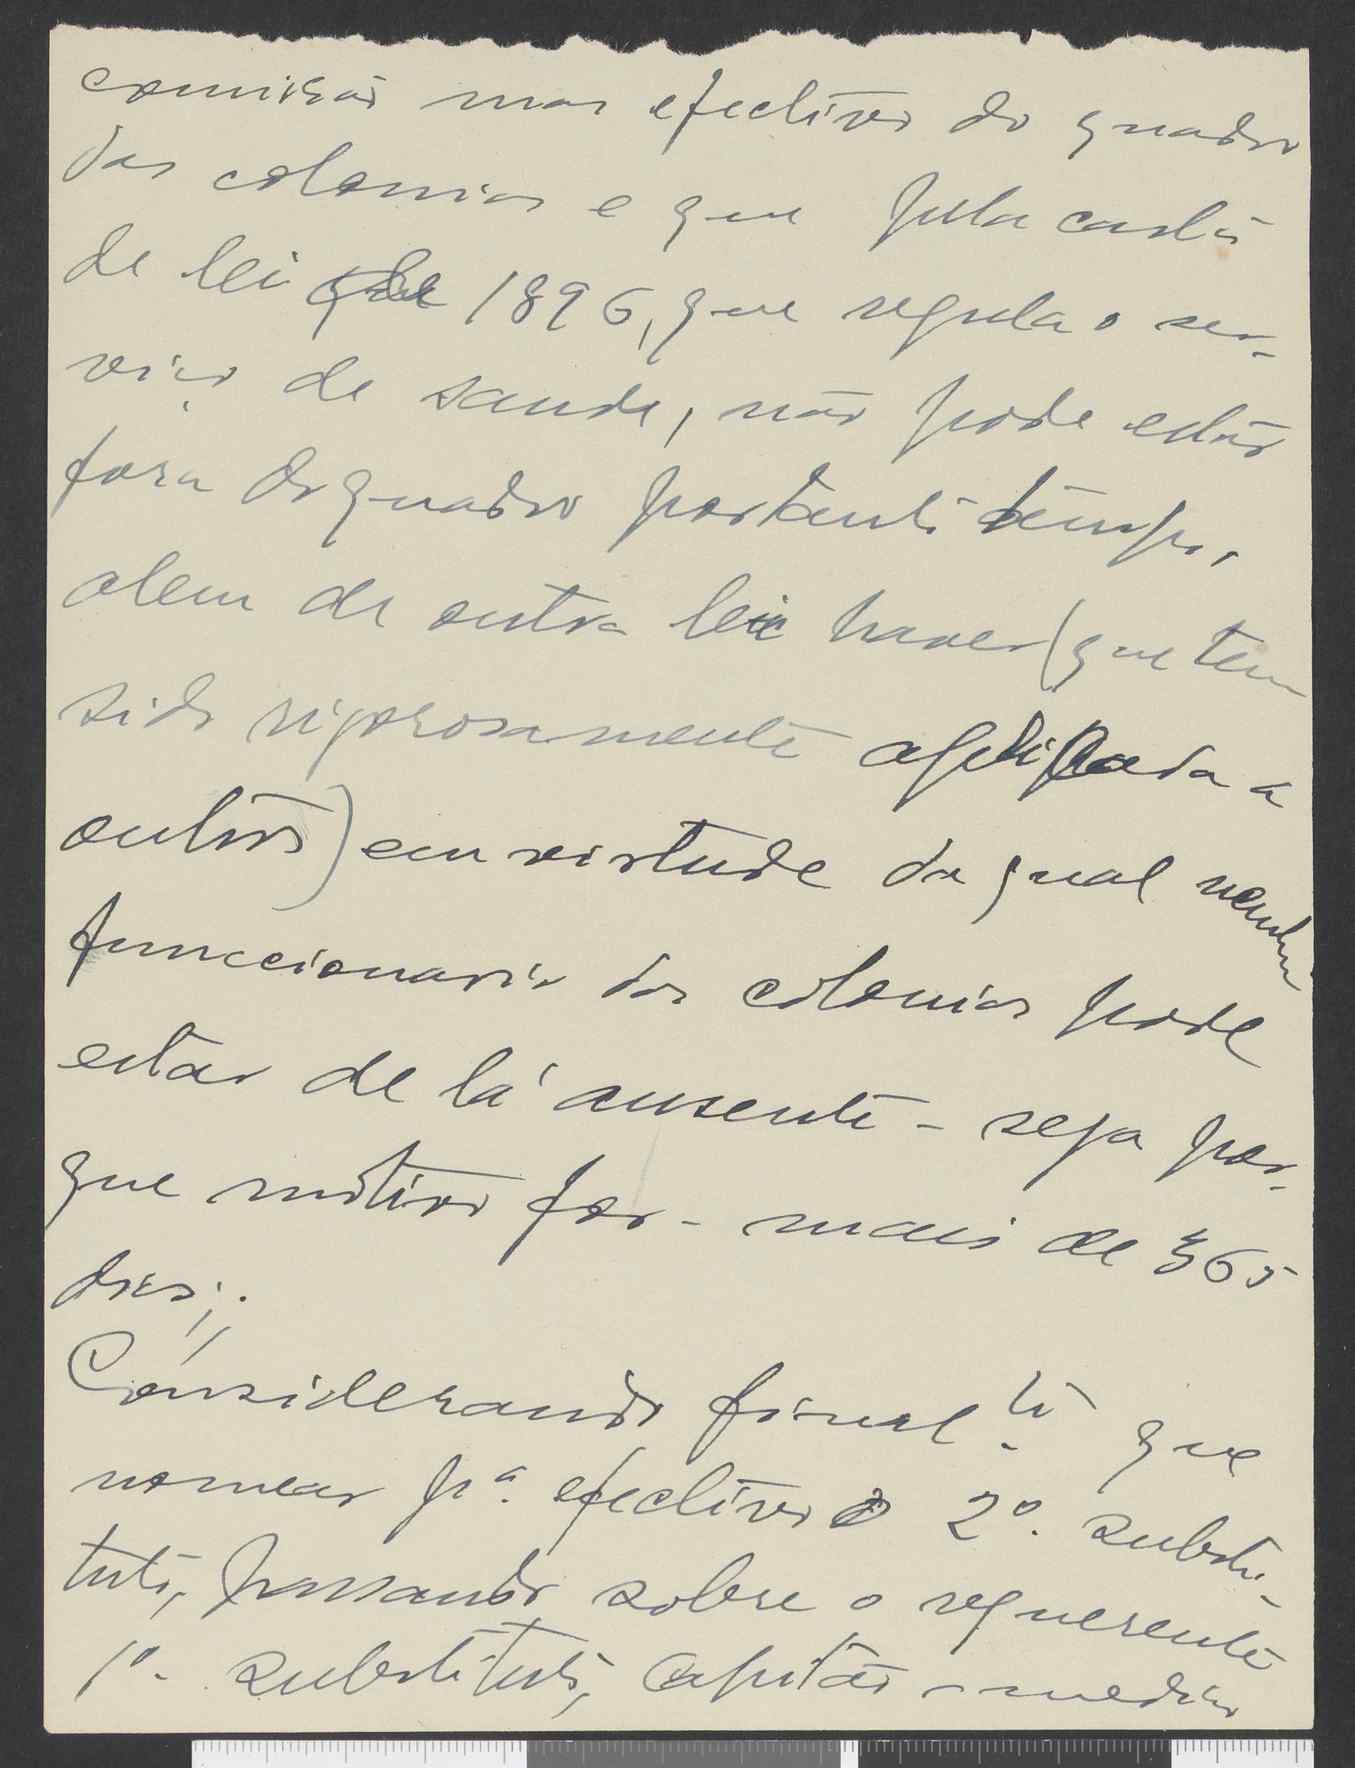 comissão mas efectivo do quadro
das colonias e que pela carta
de lei de 1896, que regula o ser-
viço de saude, não pode estar
fora do quadro por tanto tempo,
alem de outra lei haver (que tem
sido rigorosamente aplicada a
outros) em virtude da qual nenhum
funccionario das colonias pode
estar de lá ausente - seja por-
que motivo for - mais de 365
dias;
Considerando final.te que
nomear pª. efectivo o 2º. substi-
tuto, passando sobre o requerente
1º. substituto, capitão-medico